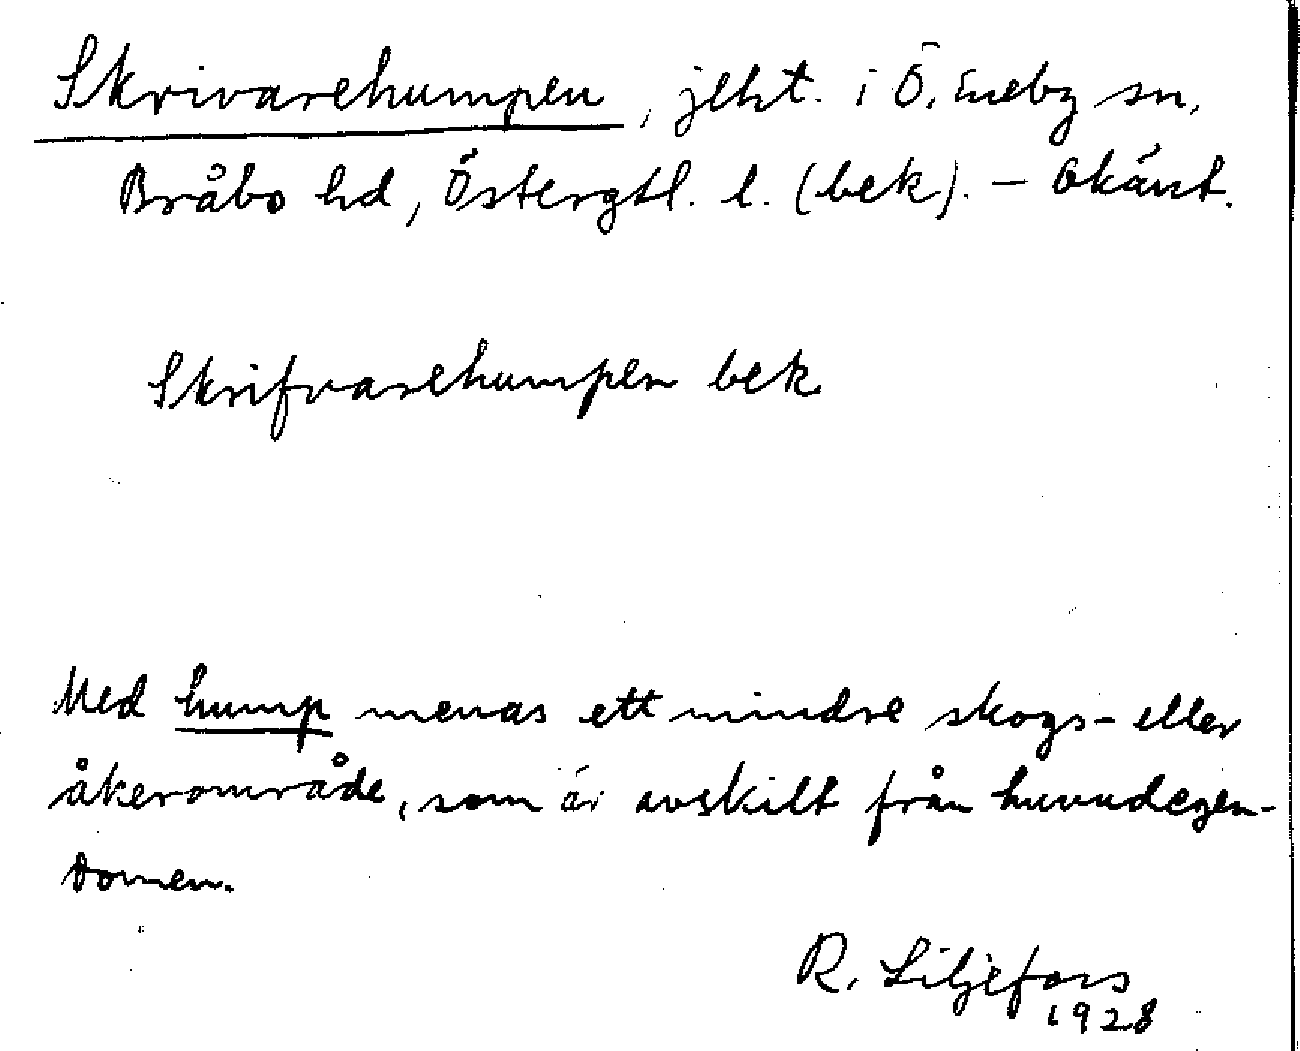 Skrivarehumpen, jlht. i Ö. Eneby sn,
Bråbo hd, Östergtl. l. (bek). – Okänt.
Skrifvarehumpen bek
Med hump menas ett mindre skogs- eller
åkerområde, som är avskilt från huvudegen-
domen.
R. Liljefors
1928